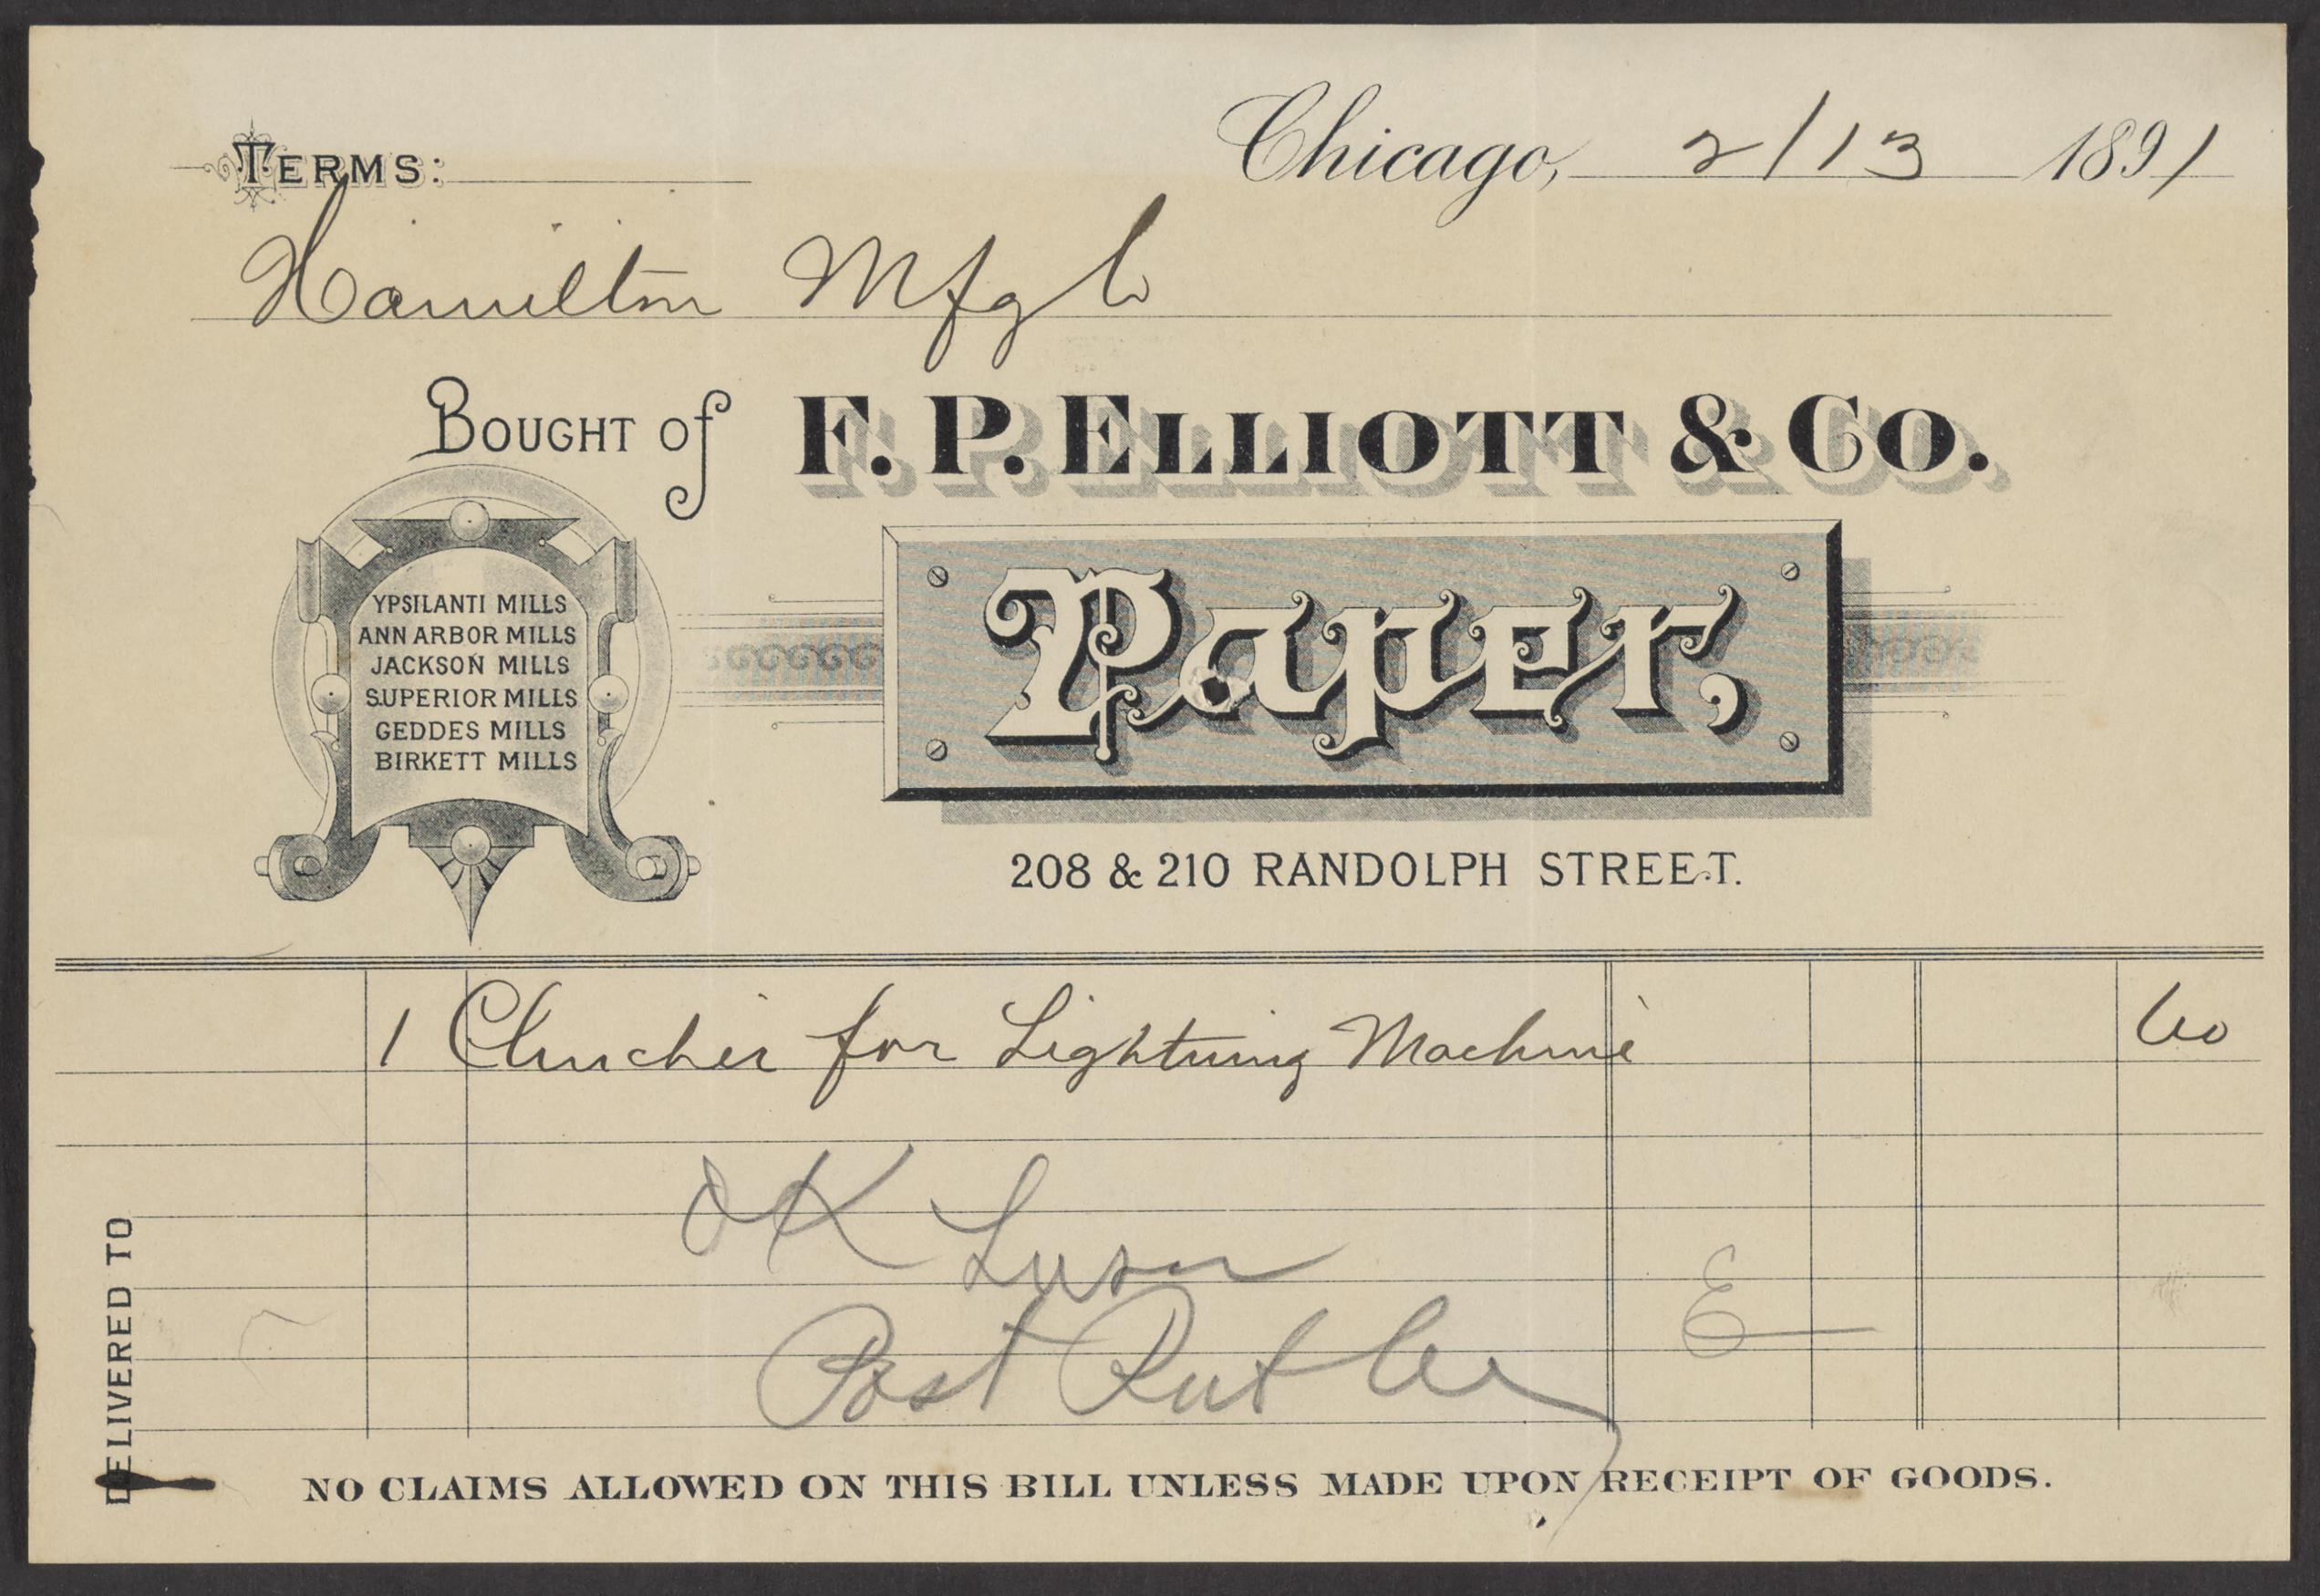 TERMS:
Chicago, 2/13 1891
Hamilton Mfg Co
BOUGHT of F. P. ELLIOTT & CO.
YPSILANTI MILLS
ANN ARBOR MILLS
JACKSON MILLS
SUPERIOR MILLS
GEDDES MILLS
BIRKETT MILLS
Paper,
208 & 210 RANDOLPH STREET.
1 Clincher for Lightning Machine 60
OK
Post
E
DELIVERED TO
NO CLAIMS ALLOWED ON THIS BILL UNLESS MADE UPON RECEIPT OF GOODS.